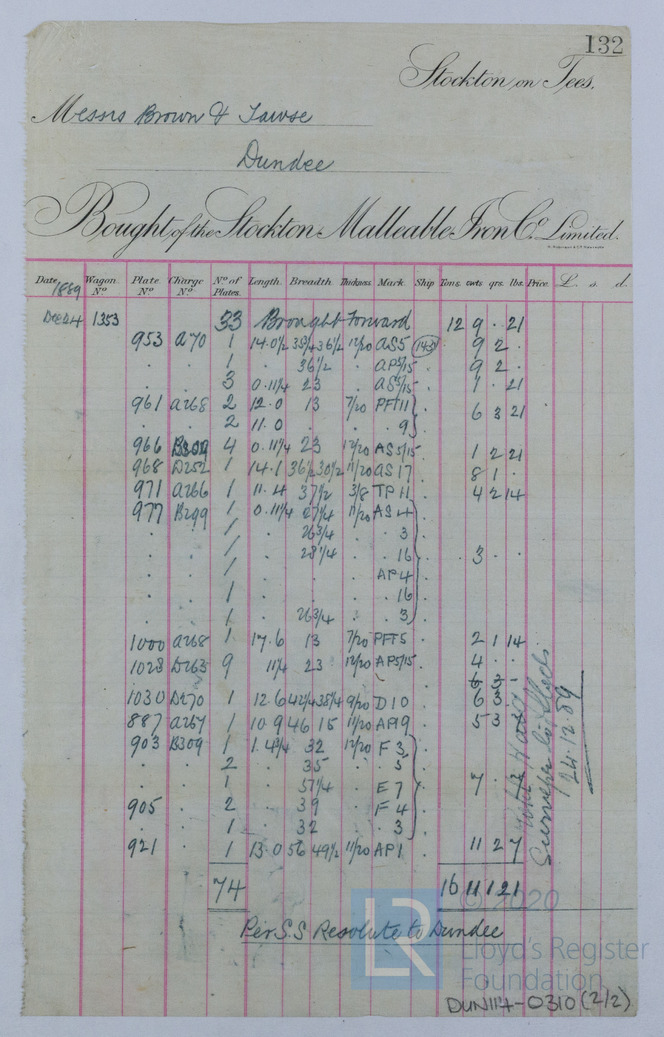 132
Stockton on Tees.
Messrs Brown & Tawse
Dundee
Bought of the Stockton Malleable Iron Co. Limited.
Date Wagon No. Plate No. Charge No. No. of Plates. Length. Breadth. Thickness Mark. Ship Tons. cwts qrs. lbs. Price. £ s. d.
1889
Dec 24 1353 33 Brought Forward 12 9 . 21
953 A70 1 14.0½ 35¾ 36½ 12/20 AS5 (143) 9 2 .
. . 1 . 36½ . AP5/15 9 2 .
. . 3 0.11¼ 23 . AS5/15 . 1 . 21
961 A268 2 12.0 13 7/20 PFT11 . 6 3 21
. . 2 11.0 . . 9 .
966 B309 4 0.11¼ 23 12/20 AS5/15 . 1 2 21
968 D252 1 14.1 36½ 30½ 11/20 AS17 8 1 .
971 A266 1 11.4 37½ 3/8 TP11 . 4 2 14
977 B299 1 0.11¼ 27¼ 11/20 AS4
. . 1 . 26¾ . 3
. . 1 . 28¼ . 16 . 3 . .
. . 1 . . . AP4
. . 1 . . . 16
. . 1 . 26¾ . 3
1000 A268 1 17.6 13 7/20 PFT5 . 2 1 14
1028 D263 9 11¼ 23 12/20 AP5/15 4 . .
6 3 -
1030 D270 1 12.6 42¼ 38¼ 9/20 D10 . 6 3 .
887 A267 1 10 9 46 15 11/20 AP9 . 5 3 .
903 B309 1 1.4¾ 32 12/20 F3
. . 2 . 35 . 5
. . 1 . 57¼ . E7 . 7 . .
905 . 2 . 39 . F4
. . 1 . 32 . 3
921 . 1 13.0 56 49½ 11/20 AP1 . 11 2 7
74 16 11 1 21
Surveyor to Lloyds
24.12.89
Per S.S Resolute to Dundee
© 2020
LR
Lloyd's Register
Foundation
DUN114-0310 (2/2)